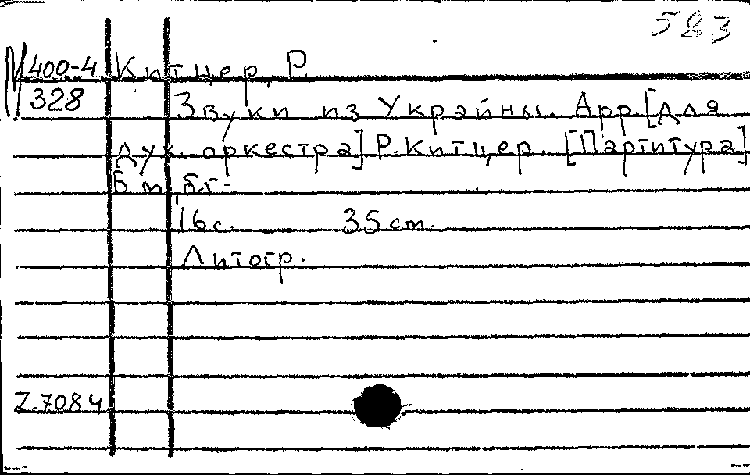 583
М400-4 Китцер, Р.
328 Звуки из Украйны. Арр. [для
дук. оркестра] Р. Китцер. [Партитура]
Б м, бг.-
16 с. 35 cm.
Литогр.
Z.7084